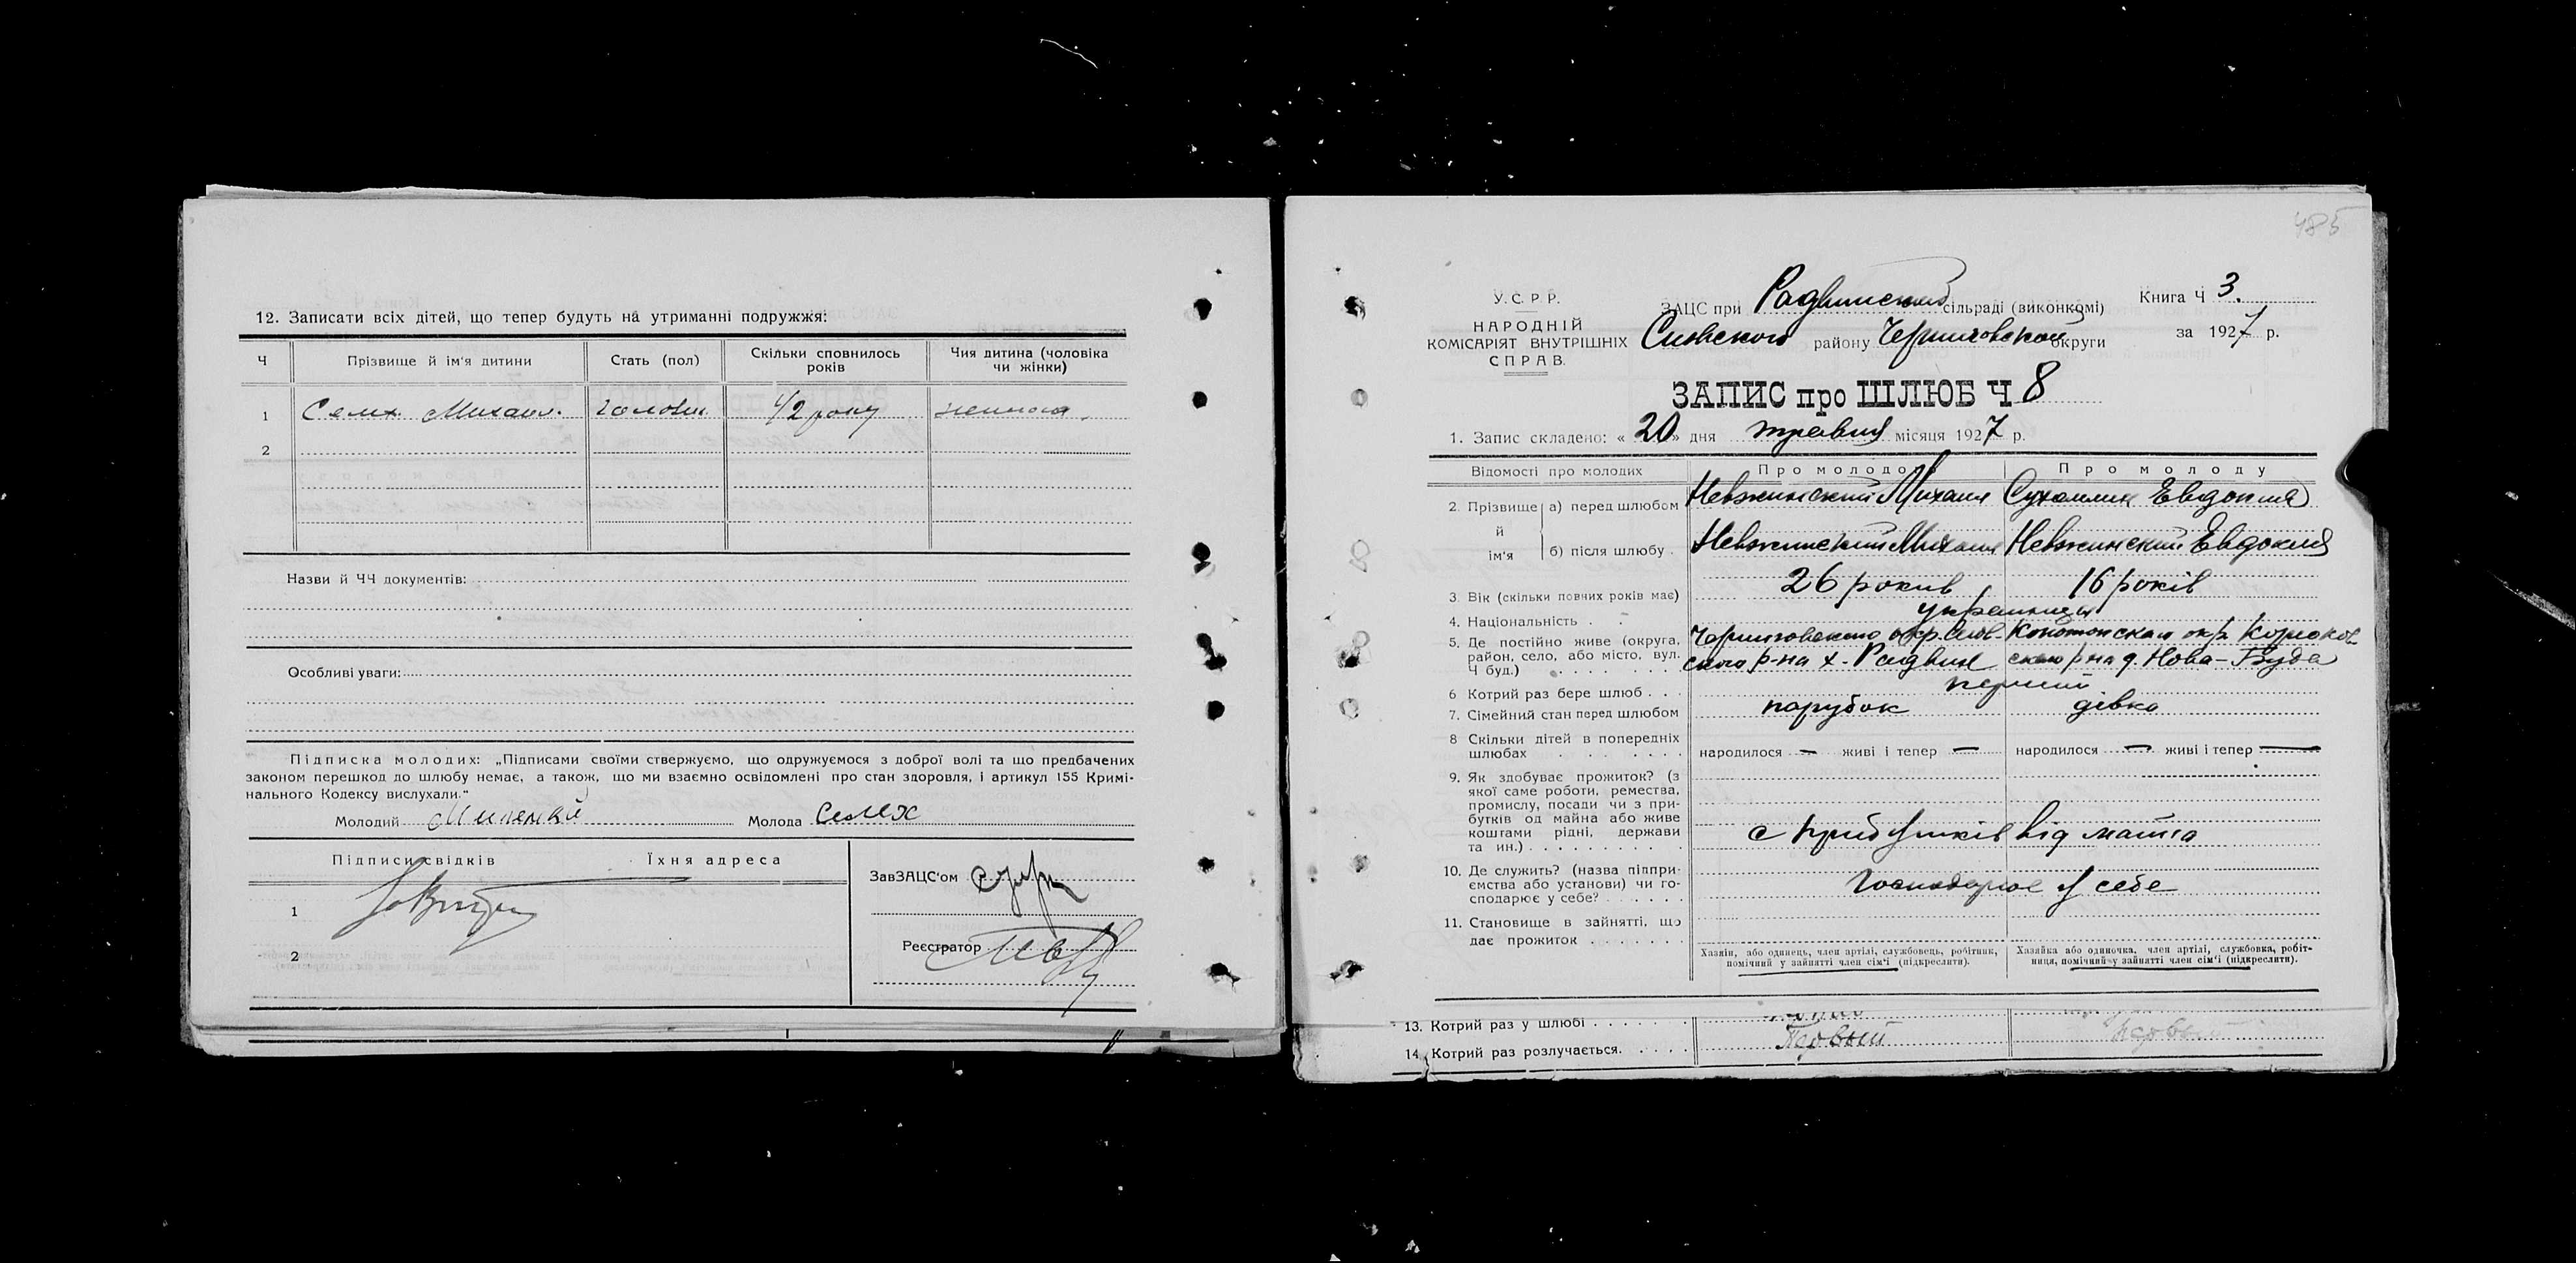 12. Записати всіх дітей, що тепер будуть на утриманні подружжя:
Ч Прізвище й ім'я дитини Стать (пол) Скільки сповнилось років Чия дитина (чоловіка чи жінки)
1 Селх Михаил. 1/2 року
2
Назви й ЧЧ документів:
Особливі уваги:
Підписка молодих: „Підписами своїми стверджуємо, що одружуємося з доброї волі та що предбачених
законом перешкод до шлюбу немає, а також, що ми взаємно освідомлені про стан здоровля, і артикул 155 Кримі-
нального Кодексу вислухали."
Молодий Молода Селех
Підписи свідків Їхня адреса
ЗавЗАЦС'ом
1
Реєстратор
2
485
У. С. Р. Р.
НАРОДНІЙ
КОМІСАРІЯТ ВНУТРІШНІХ
СПРАВ.
ЗАЦС при сільраді (виконкомі)
Сновского району Черниговской округи
Книга Ч 3.
за 1927 р.
ЗАПИС про ШЛЮБ Ч 8
1. Запис складено: « 20 » дня травня місяця 1927 р.
Відомості про молодих Про молодого Про молоду
2. Прізвище й ім'я а) перед шлюбом Невжинский Михаил Сухомлин Евдокия
б) після шлюбу Невжинский Михаил Невжинский Евдокия
3. Вік (скільки повних років має) 26 рокив 16 років
4. Національність українці
5. Де постійно живе (округа, район, село, або місто, вул. Ч буд.) Черниговского окр. Снов-
ского р-на х. Радвин Конотопская окр. Корюков-
ского р-на д. Нова-Буда
6 Котрий раз бере шлюб перший
7. Сімейний стан перед шлюбом парубок дівка
8 Скільки дітей в попередніх шлюбах народилося — живі і тепер — народилося — живі і тепер —
9. Як здобуває прожиток? (з
якої саме роботи, ремества,
промислу, посади чи з при-
бутків од майна або живе
коштами рідні, держави
та ин.) с прибутків від майна
10. Де служить? (назва підпри-
ємства або установи) чи го-
сподарює у себе? Господарює у себе
11. Становище в зайнятті, що
дає прожиток
Хазяїн, або одинець, член артілі, службовець, робітник,
помічний у зайнятті член сім'ї (підкреслити).
Хазяйка або одиночка, член артілі, службовка, робіт-
ниця, помічний у зайнятті член сім'ї (підкреслити).
13. Котрий раз у шлюбі
14. Котрий раз розлучається. Первый Первый